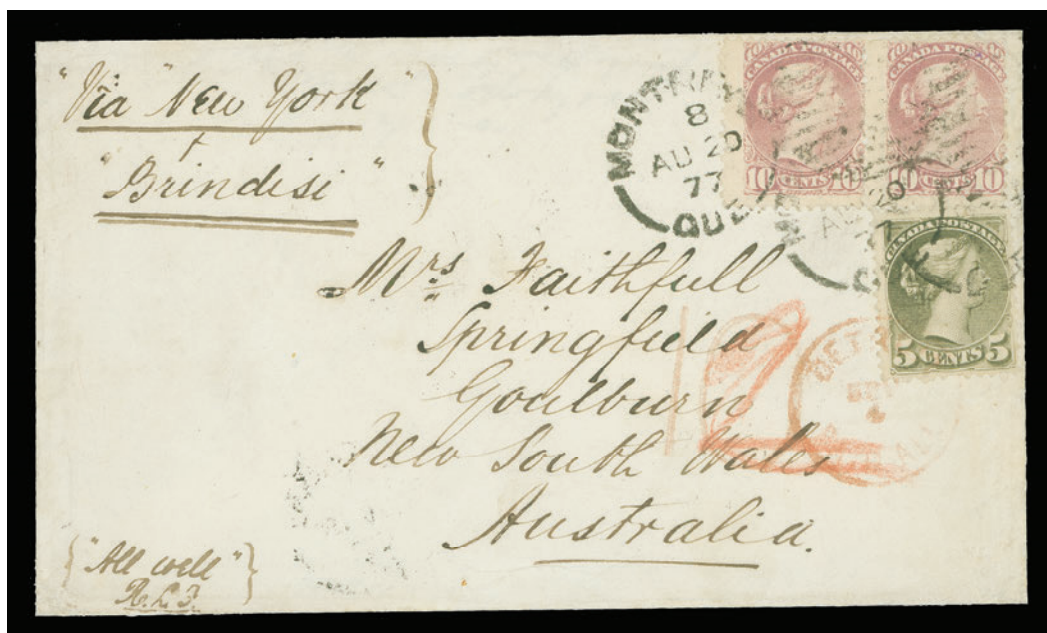 "Via New York"
+
"Brindisi"
MONTREAL
8
AU 20
77
QUE
CANADA POSTAGE
10 CENTS 10
CANADA POSTAGE
10 CENTS 10
AU 20
77
CANADA POSTAGE
5 CENTS 5
Mrs Faithfull
Springfield
Goulburn
New South Wales
Australia.
{"All well"}
R.L.F.